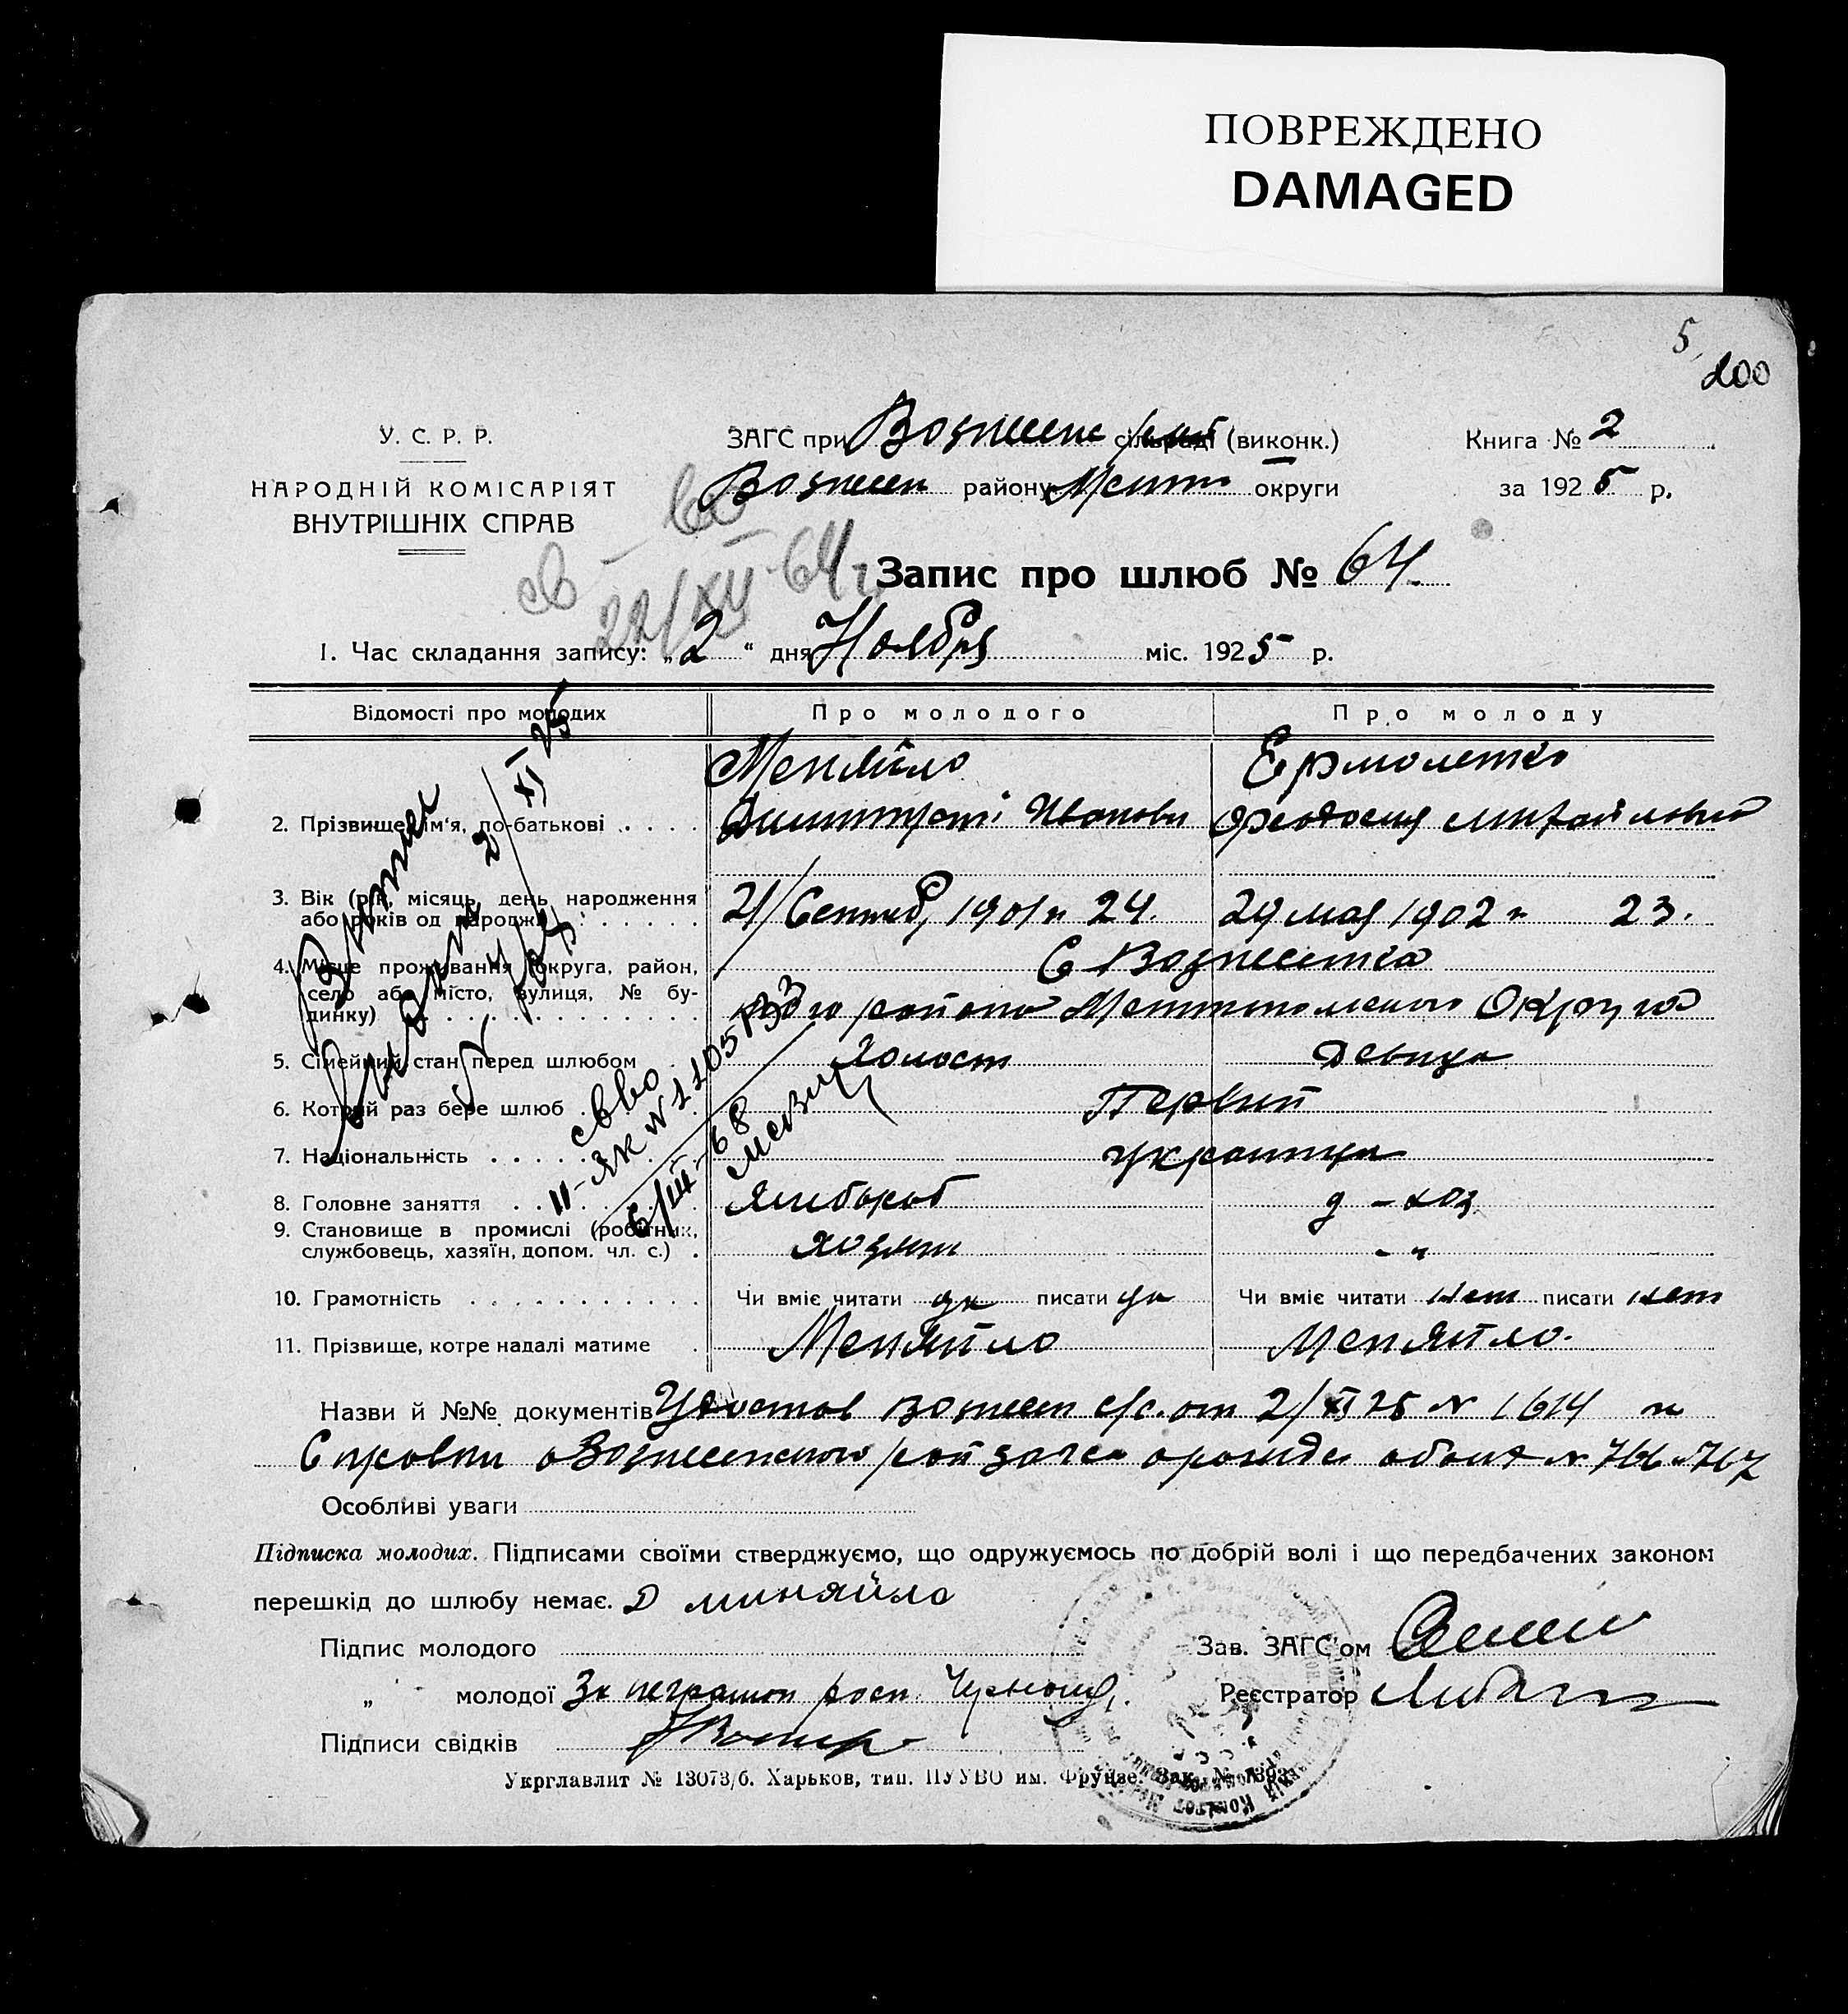 ПОВРЕЖДЕНО
DAMAGED
5
200
У. С. Р. Р.
НАРОДНІЙ КОМІСАРІЯТ
ВНУТРІШНІХ СПРАВ
ЗАГС при Вознесен сільраді (виконк.)
Книга № 2
Вознесен району Мелит округи
за 1925 р.
22/XII-64 г.
Запис про шлюб № 64.
1. Час складання запису: „2“ дня Ноября міс. 1925 р.
Відомості про молодих
Про молодого
Про молоду
2. Прізвище, ім'я, по-батькові . . . .
Меняйло
Димитрий Иванови
Ермоленко
Феодосия Михайловна
3. Вік (рік, місяць, день народження
або років од народж.)
21/Сентяб, 1901 г 24.
29 мая 1902 г 23.
4. Місце проживання (округа, район,
село або місто, вулиця, № бу-
динку)
С Вознесенка
того района Мелитопольского Округа
5. Сімейний стан перед шлюбом
Холост
Девица
6. Котрий раз бере шлюб
Первый
7. Національність
украинцы
8. Головне заняття
Хлебороб
д - хоз
9. Становище в промислі (робітник,
службовець, хазяїн, допом. чл. с.) .
хозяин
- "
10. Грамотність
Чи вміє читати да писати да
Чи вміє читати нет писати нет
11. Прізвище, котре надалі матиме
Меняйло
Меняйло.
2/XI 25
II-ЯК № 1105133
6/III-68
Назви й №№ документів Удостов Вознесен с/с. от 2/XI 25 № 1614 и
Справки Вознесенского рай загса о рожде обоих № 766 и 767
Особливі уваги
Підписка молодих. Підписами своїми стверджуємо, що одружуємось по добрій волі і що передбачених законом
перешкід до шлюбу немає. Д миняйло
Підпис молодого
Зав. ЗАГС'ом
„ молодої За неграмот росп.
Реєстратор
Підписи свідків
Укрглавлит № 13073/б. Харьков, тип. ПУУВО им. Фрунзе. Зак. №